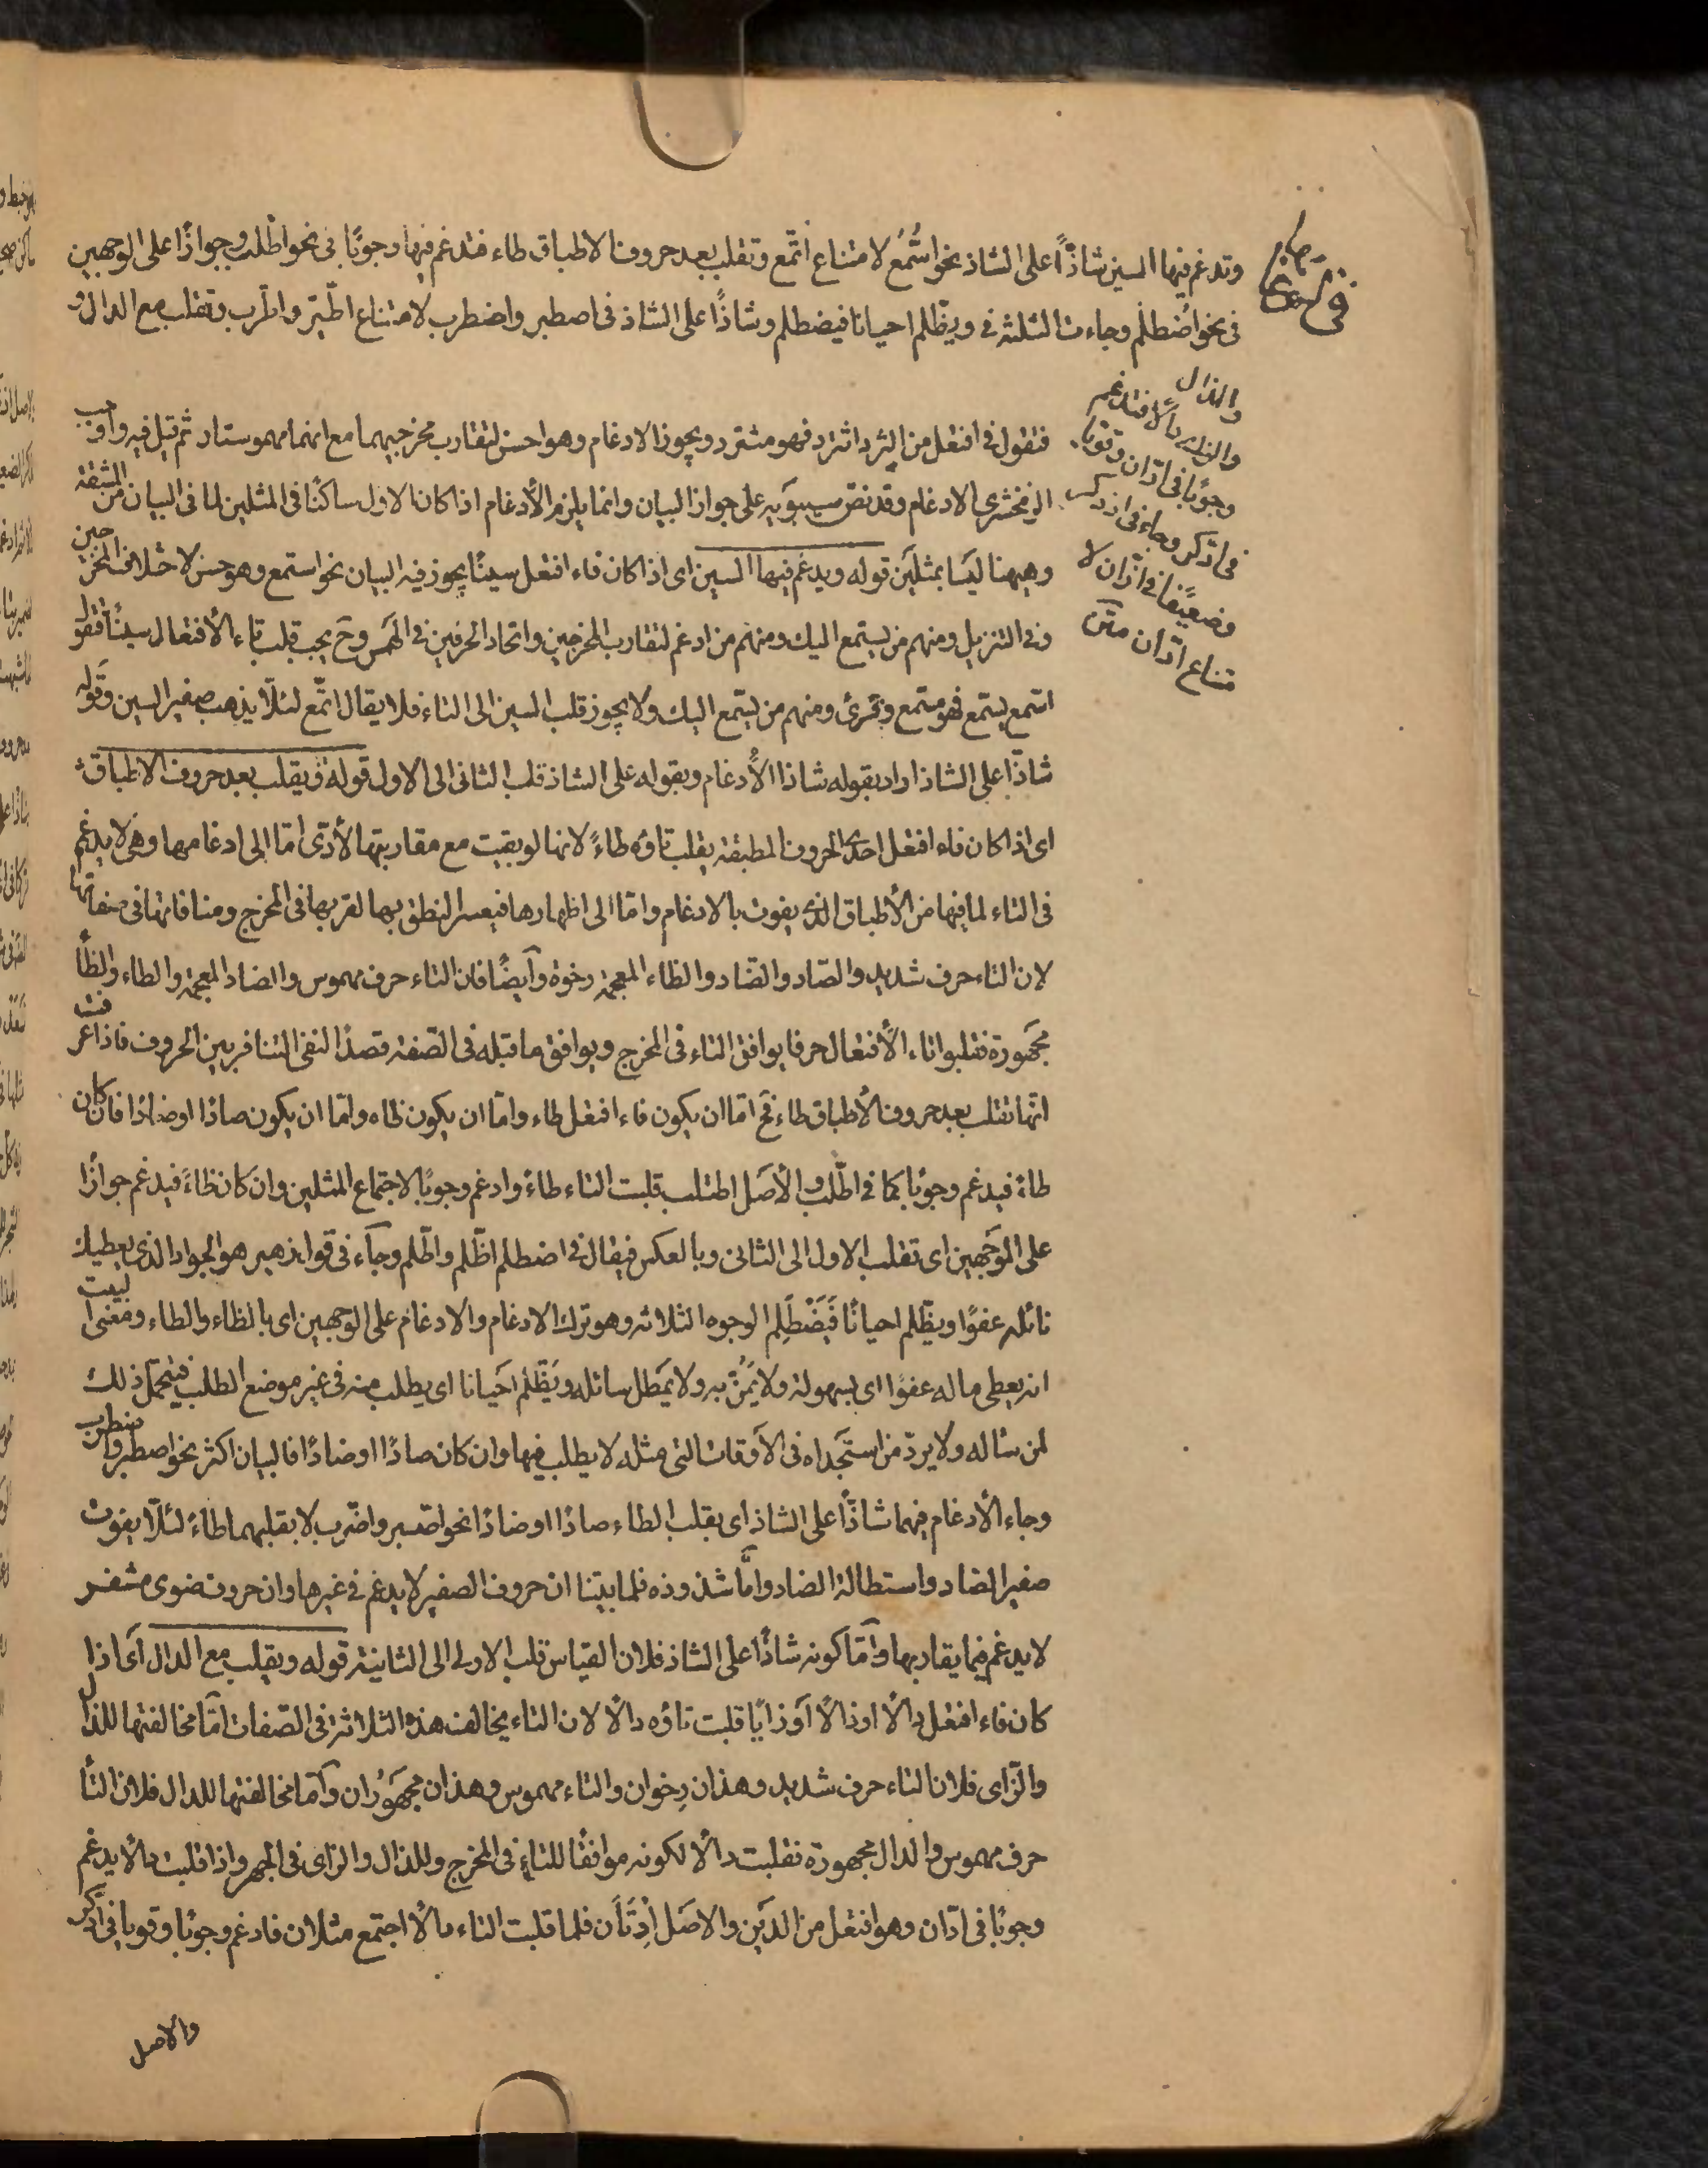 وتدغم فيها السين شاذّاً على الشاذ نحو اسّمع لامتناع اتّمع وتقلب بعد حروف الاطباق طاء فتدغم فيها وجوبًا فى نحو اطّلب وجوازًا على الوجهين
فى نحو اضطلم وجاءت الثلثه فى ويظّلم احيانا فيضطلم وشاذًا على الشاذ فى اصطبر واضطرب لامتناع اطّبر واطّرب وتقلب مع الدال و
والذال
والزاى دالًا فتدغم
وجوبًا فى ادّان وقويا
فى ادّكر وجاء فى اذدكر
وضعيفًا فى ازّان لا
متناع ادّان متن
فتقول فى افتعل من الثرد اثترد فهو مثترد ويجوز الادغام وهو احسن لتقارب مخرجيهما مع انهما مهموستان ثم قيل فيه واوجب
الزمخشرى الادغام وقد نصّ سيبويه على جواز البيان وانما يلزم الأدغام اذا كان الاول ساكنًا فى المثلين لما فى البيان من المشقة
وهيهنا ليسا بمثلين قوله ويدغم فيها السين اى اذا كان فاء افتعل سينًا يجوز فيه البيان نحو استمع وهو حسن لاختلاف المخرجين
وفى التنزيل ومنهم من يستمع اليك ومنهم من ادغم لتقارب المخرجين واتحاد الحرفين فى الهمس وح يجب قلب تاء الأفتعال سينًا فتقول
اسّمع يسّمع فهو مسّمع وقرئ ومنهم من يسّمع اليك ولا يجوز قلب السين الى التاء فلا يقال اتّمع لئلّا يذهب صفير السين وقوله
شاذّا على الشاذ اراد بقوله شاذا الأدغام وبقوله على الشاذ قلب الثانى الى الاول قوله ويقلب بعد حروف الاطباق
اى اذا كان فاء افتعل احدى الحروف المطبقة يقلب تاؤه طاءً لانها لو بقيت مع مقاربتها لأدّى امّا الى ادغامها وهى لا يدغم
فى التاء لما فيها من الأطباق الذى يفوت بالادغام وامّا الى اظهارها فيعسر النطق بها لقربها فى المخرج ومنافاتها فى صفاتها
لان التاء حرف شديد والصّاد والضاد والظاء المعجمة رخوة وأيضًا فان التاء حرف مهموس والضاد المعجمة والطاء والظأ
مجهورة فقلبوا تاء الأفتعال حرفا يوافق التاء فى المخرج ويوافق ما قبله فى الصّفة قصدًا لنفى التنافر بين الحروف فاذا عرفت
انّها تقلب بعد حروف الأطباق طاء فح امّا ان يكون فاء افتعل طاء وامّا ان يكون ظاء وامّا ان يكون صادًا او ضادًا فان كان
طاءً فيدغم وجوبًا كما فى اطّلب والأصل اطتلب قلبت التاء طاءً وادغم وجوبًا لاجتماع المثلين وان كان ظاءً فيدغم جوازًا
على الوجهين اى تقلب الاول الى الثانى وبالعكس فيقال فى اضطلم اظّلم واطّلم وجاء فى قول زهير هو الجواد الذى يعطيك
نائله عفوًا ويظّلم احيانًا فَيَضْطَلِم الوجوه الثلاثه وهو ترك الادغام والادغام على الوجهين اى بالظاء والطاء ومعنى البيت
انه يعطى ماله عفوًا اى بسهولة ولا يَمُنّ به ولا يمطل سائله ويُظّلم احيانا اى يطلب منه فى غير موضع الطلب فيتحمّل ذلك
لمن ساله ولا يردّ من استجداه فى الأوقات التى مثله لا يطلب فيها وان كان صادًا او ضادًا فالبيان اكثر نحو اصطبر واضطرب
وجاء الأدغام فيهما شاذًّا على الشاذ اى بقلب الطاء صادًا او ضادًا نحو اصّبر واضّرب لا بقلبهما طاءً لئلّا يفوت
صفير الصاد واستطالة الضاد وامّا شذوذه فلما بيّنا ان حروف الصفير لا يدغم فى غيرها وان حروف ضوى مشفر
لا يدغم فيما يقاربها وامّا كونه شاذًا على الشاذ فلان القياس قلب الاولى الى الثانية قوله ويقلب مع الدال اى اذا
كان فاء افتعل دالًا او ذالًا او زايًا قلبت تاؤه دالًا لان التاء يخالف هذه الثلاثة فى الصّفات امّا مخالفتها للذال
والزّاى فلان التاء حرف شديد وهذان رِخوان والتاء مهموس وهذان مجهوران وامّا مخالفتها للدال فلان التأ
حرف مهموس والدال مجهورة فقلبت دالًا لكونه موافقًا للتاء فى المخرج وللذال والزاى فى الجهر واذا قلبت دالًا يدغم
وجوبًا فى ادّان وهو افتعل من الدَيْن والاصل اِدْتَان فلما قلبت التاء دالًا اجتمع مثلان فادغم وجوبًا وقويا فى ادّكر
والاصل